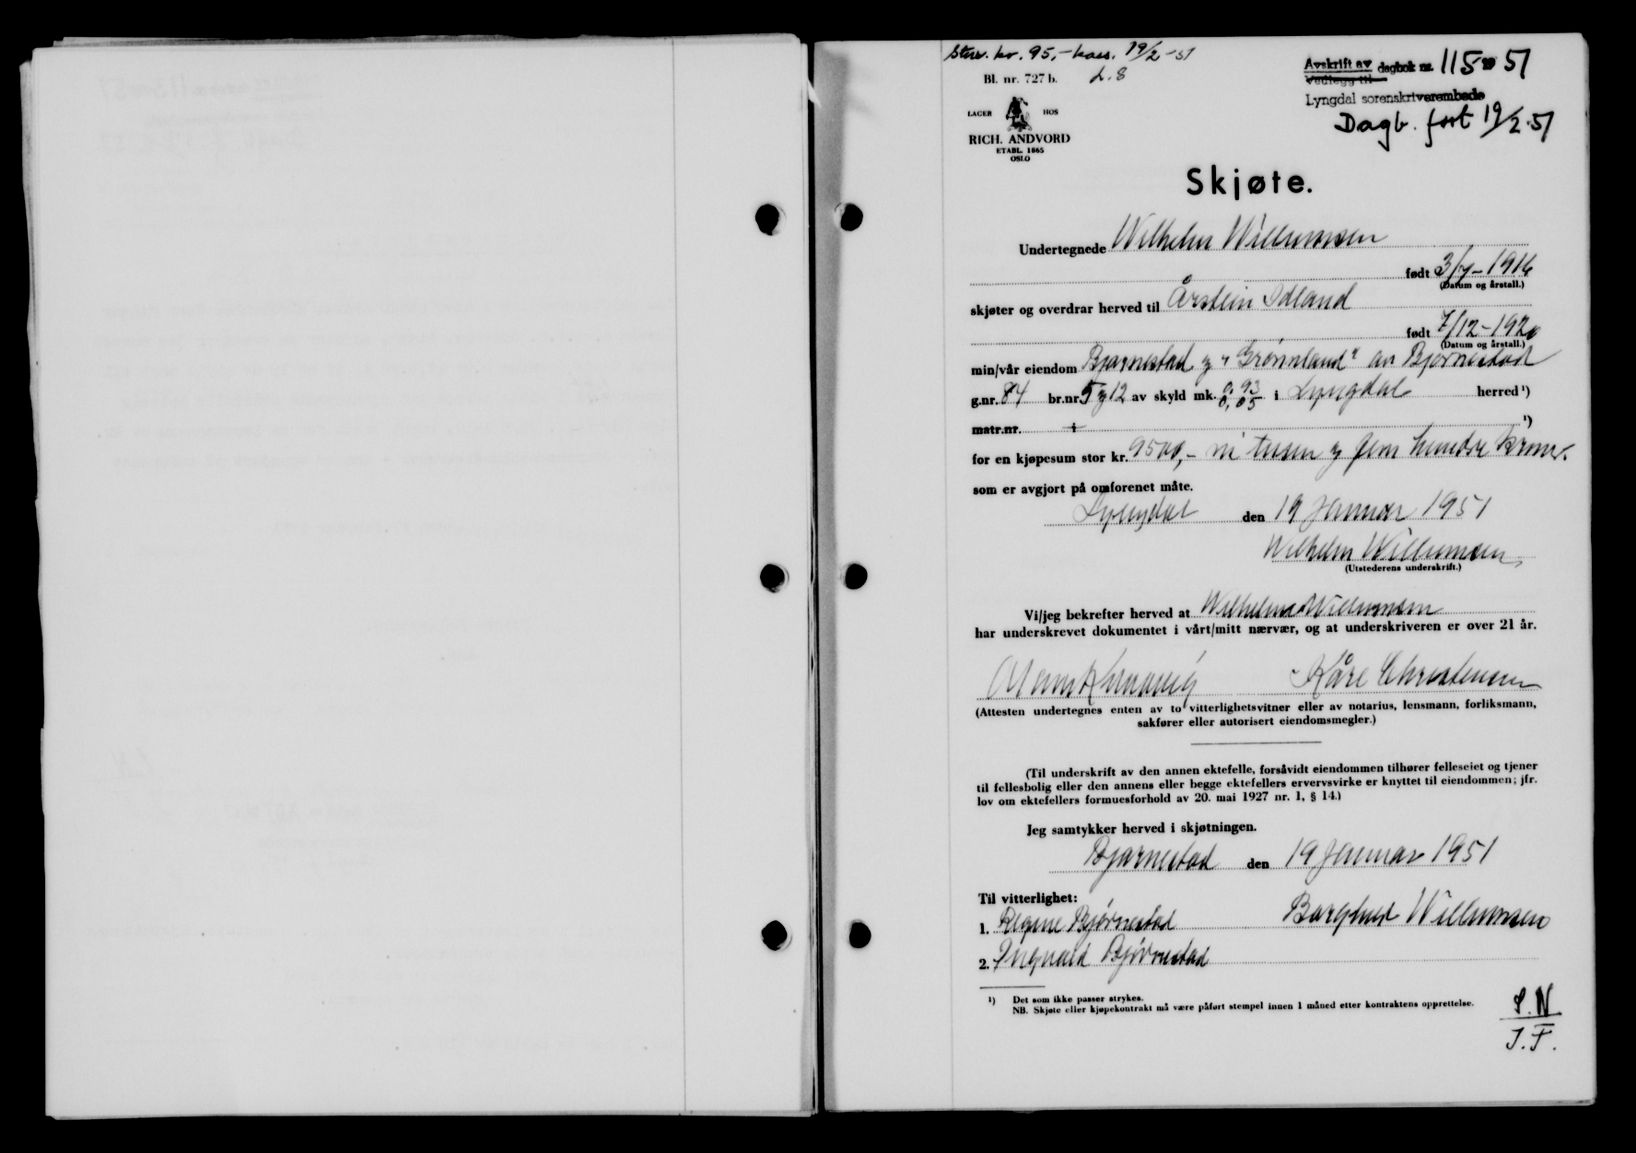 Stev. kr. 95,- kass. 19/2-51
Bl. nr. 727 b. d. 8
LAGER HOS
RICH. ANDVORD
ETABL. 1865
OSLO
Avskrift av dagbok nr. 115 19 51
Vedlegg til
Lyngdal sorenskriverembede
Dagb. ført 19/2-51
Skjøte.
Undertegnede Wilhelm Willumsen
født 3/7-1916
(Datum og årstall.)
skjøter og overdrar herved til Årstein Idland
født 7/12-1920
(Datum og årstall.)
min/vår eiendom Bjørnestad og "Grønnland" av Bjørnestad
g.nr. 84 br.nr. 5 og 12 av skyld mk. 0,93 0,05 i Lyngdal herred ¹)
matr.nr. i ¹)
for en kjøpesum stor kr. 9500,- ni tusen og fem hundre kroner.
som er avgjort på omforenet måte.
Lyngdal den 19 Januar 1951
Wilhelm Willumsen
(Utstederens underskrift.)
Vi/jeg bekrefter herved at Wilhelm Willumsen
har underskrevet dokumentet i vårt/mitt nærvær, og at underskriveren er over 21 år.
Kåre Christensen
(Attesten undertegnes enten av to vitterlighetsvitner eller av notarius, lensmann, forliksmann,
sakfører eller autorisert eiendomsmegler.)
(Til underskrift av den annen ektefelle, forsåvidt eiendommen tilhører felleseiet og tjener
til fellesbolig eller den annens eller begge ektefellers ervervsvirke er knyttet til eiendommen; jfr.
lov om ektefellers formuesforhold av 20. mai 1927 nr. 1, § 14.)
Jeg samtykker herved i skjøtningen.
Bjørnestad den 19 Januar 1951
Til vitterlighet:
Borghild Willumsen
1. Regine Bjørnestad
2. Ingvald Bjørnestad
¹) Det som ikke passer strykes.
NB. Skjøte eller kjøpekontrakt må være påført stempel innen 1 måned etter kontraktens opprettelse.
S.N
J.F.